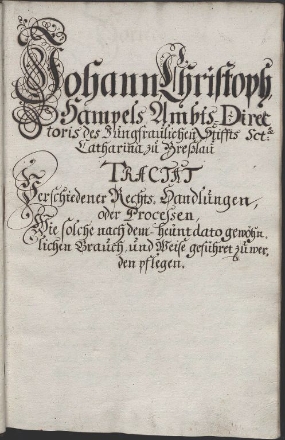 Johann Christoph
Hampels Ambts-Direc
toris des Jüngfraülichen Stiffts Sct:ae
Catharinä zü Breßlaü
TRACTAT
Verschiedener Rechts-Handlüngen,
oder Processen,
Wie solche nach dem heünt dato gewöhn,
lichen Braüch, ünd Weise geführet zü wer,
den pflegen.